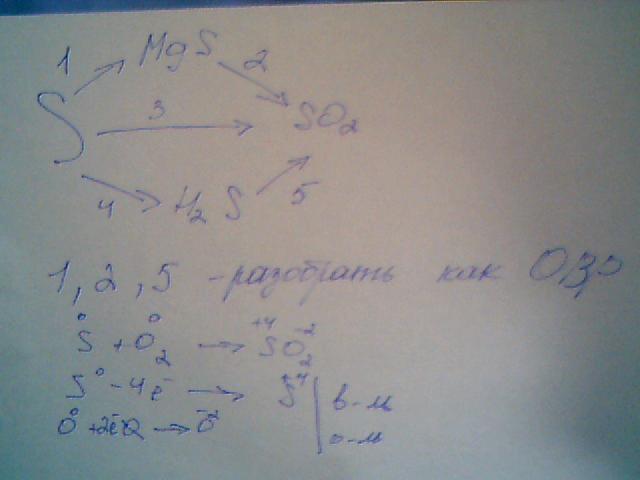 1 MgS 2
S 3 SO₂
4 H₂S 5
1, 2, 5 - разобрать как ОВР
S⁰ + O₂⁰ → S⁺⁴O₂⁻²
S⁰ - 4ē → S⁺⁴ | в-ль
O⁰ + 2ē → O⁻² | о-ль